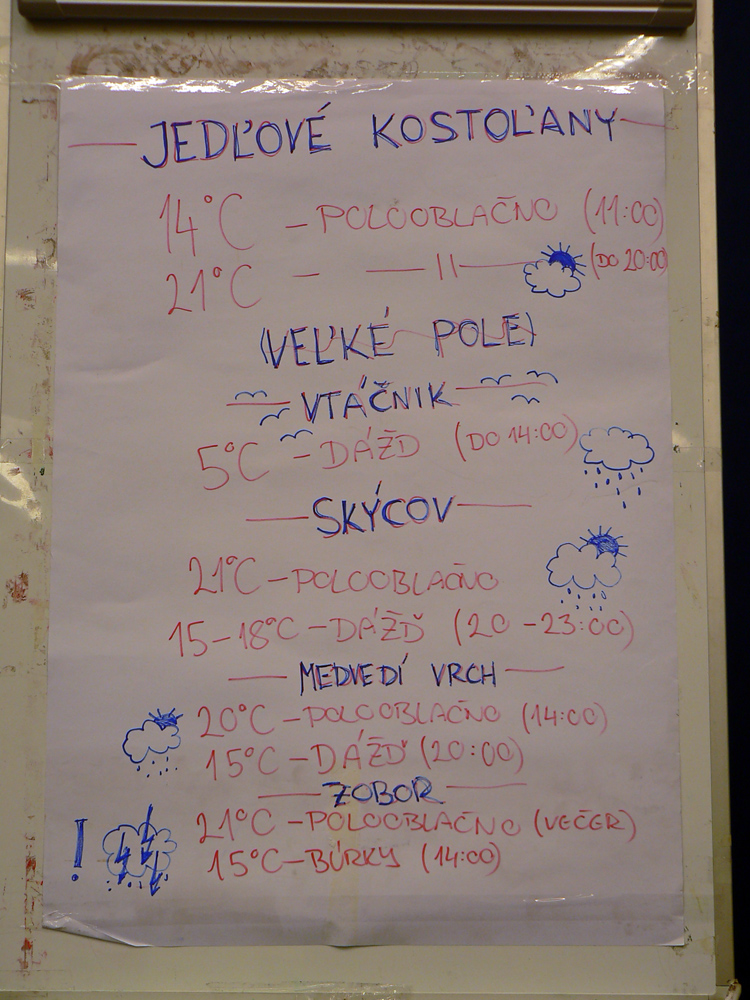 JEDĽOVÉ KOSTOĽANY
14°C - POLOOBLAČNO (11:00)
21°C - —— 11 —— (DO 20:00)
(VEĽKÉ POLE)
VTÁČNIK
5°C - DÁŽD (DO 14:00)
SKÝCOV
21°C - POLOOBLAČNO
15-18°C - DÁŽĎ (20 - 23:00)
MEDVEDÍ VRCH
20°C - POLOOBLAČNO (14:00)
15°C - DÁŽĎ (20:00)
ZOBOR
! 21°C - POLOOBLAČNO (VEČER)
15°C - BÚRKY (14:00)